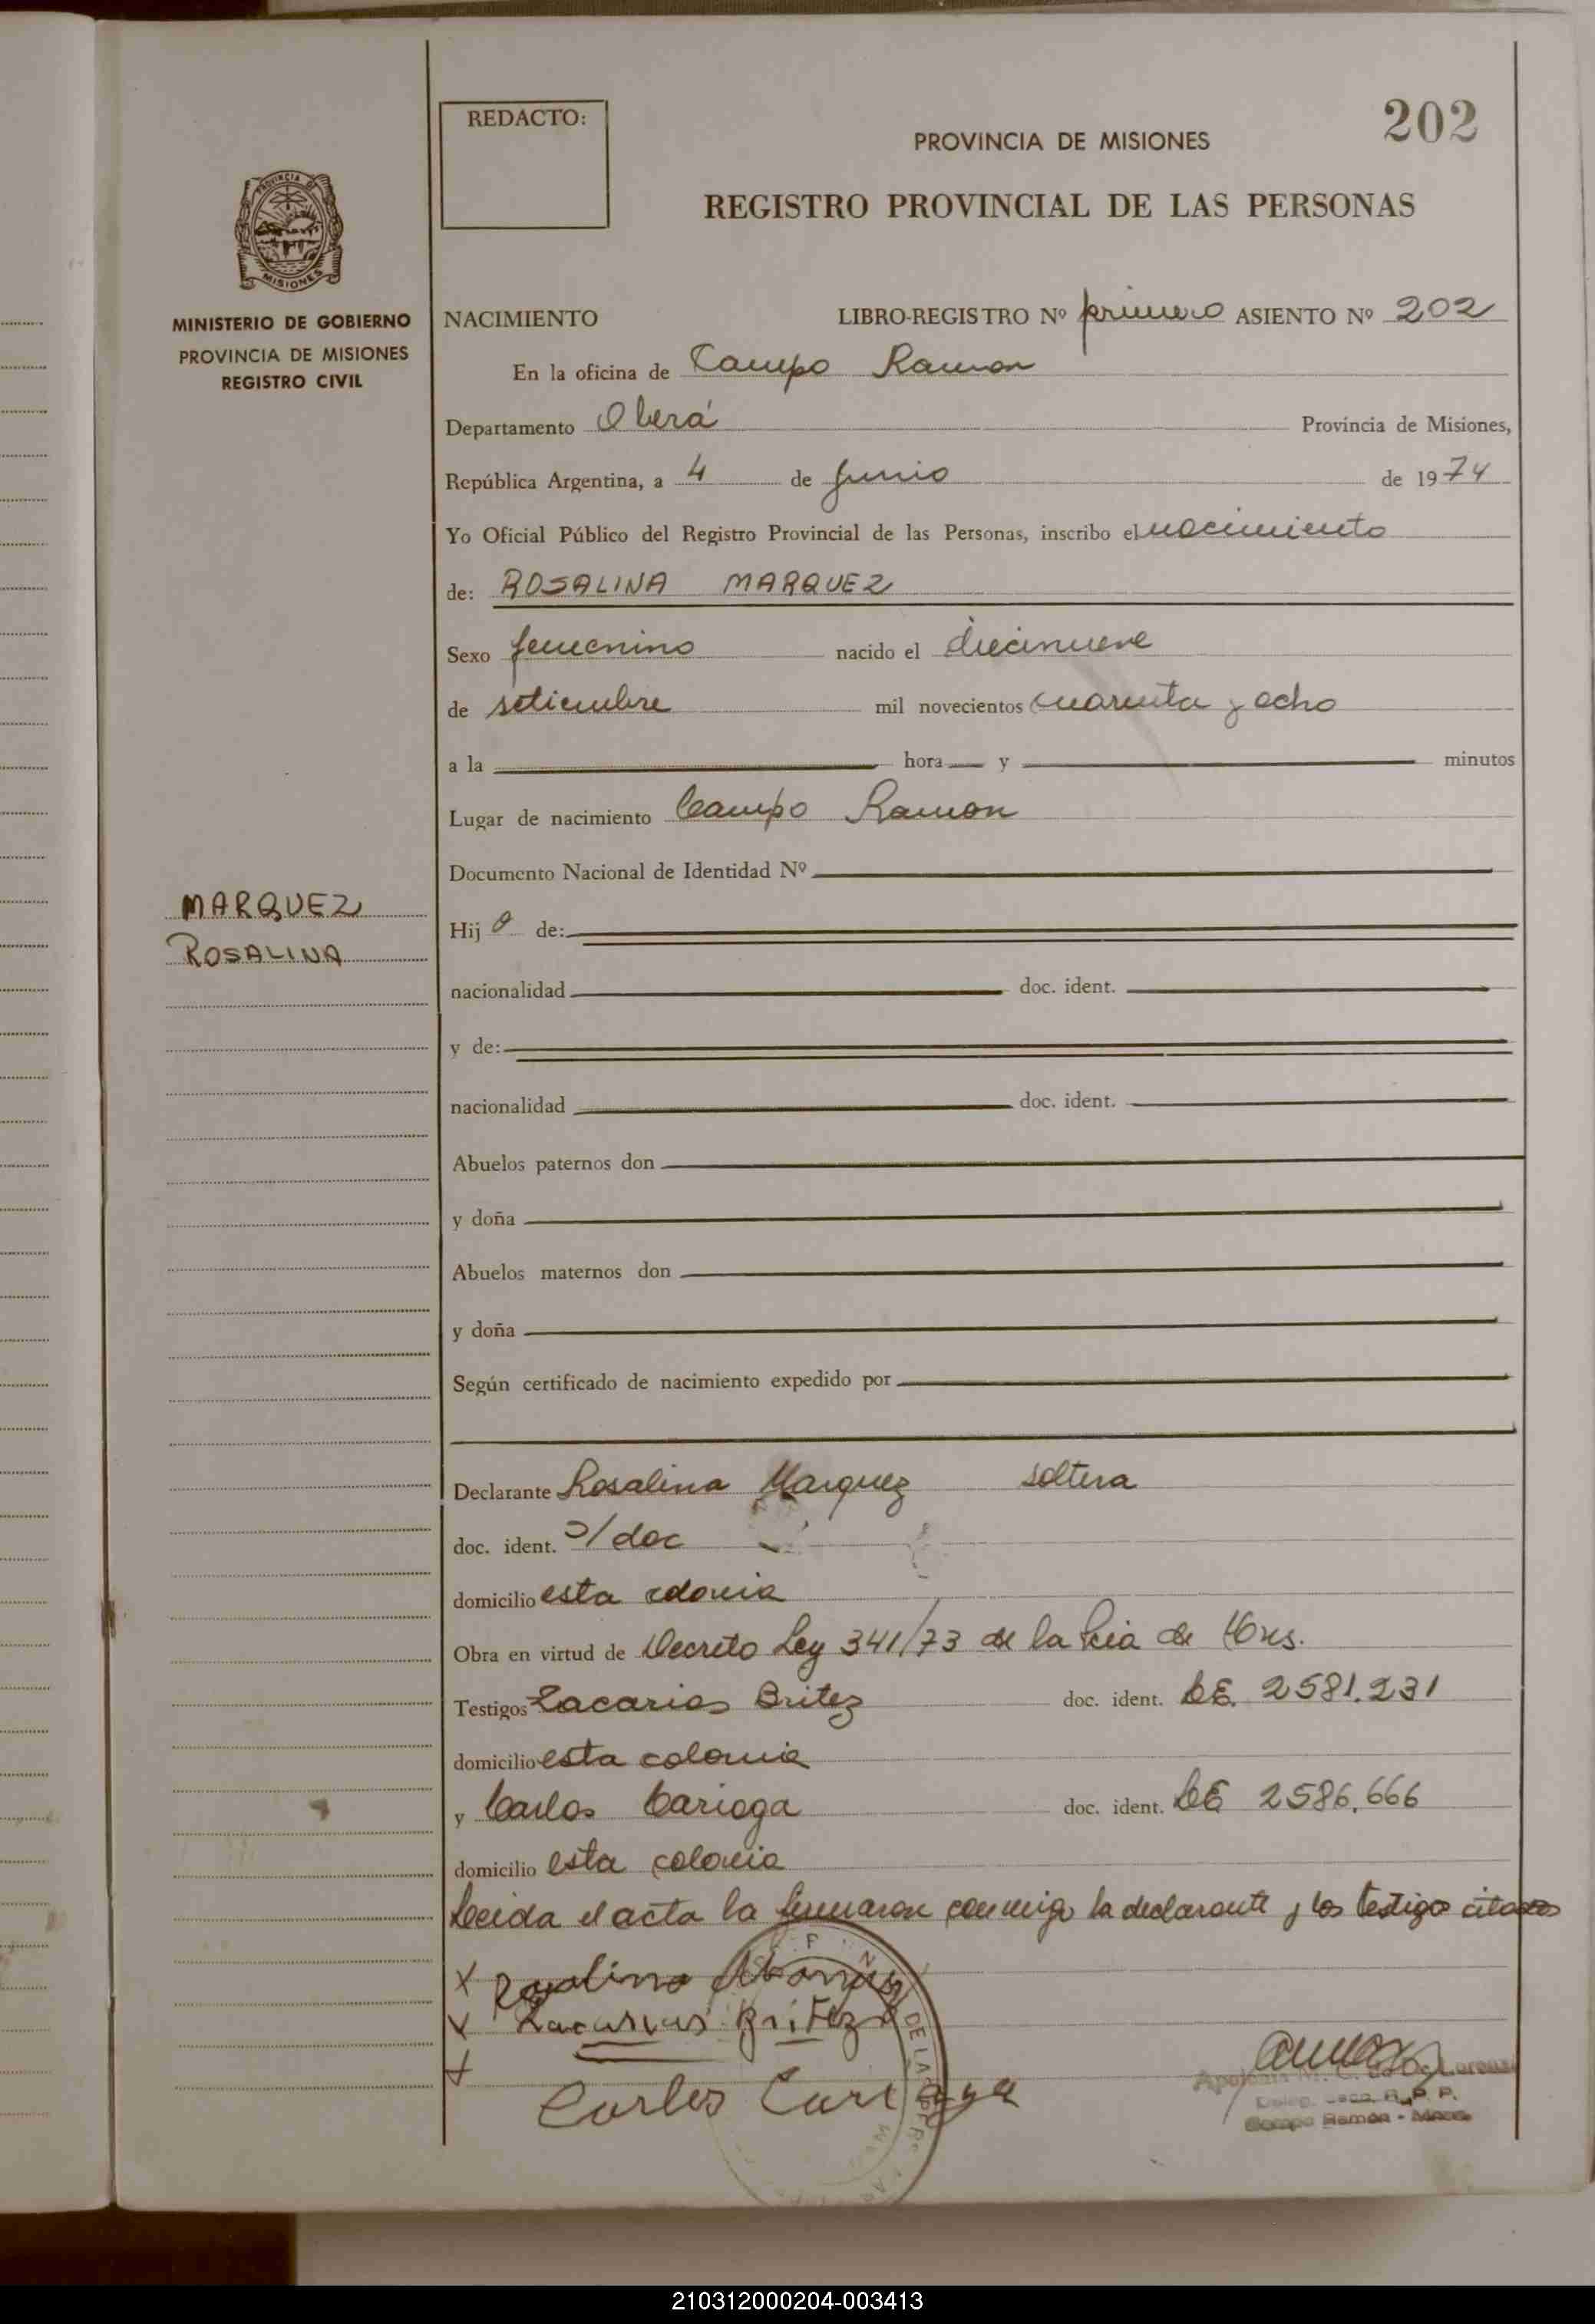 REDACTO:
202
PROVINCIA DE MISIONES
REGISTRO PROVINCIAL DE LAS PERSONAS
PROVINCIA DE
MISIONES
MINISTERIO DE GOBIERNO
PROVINCIA DE MISIONES
REGISTRO CIVIL
NACIMIENTO LIBRO-REGISTRO Nº primero ASIENTO Nº 202
En la oficina de Campo Ramon
Departamento Oberá Provincia de Misiones,
República Argentina, a 4 de Junio de 1974
Yo Oficial Público del Registro Provincial de las Personas, inscribo el nacimiento
de: ROSALINA MARQUEZ
Sexo femenino nacido el diecinueve
de setiembre mil novecientos cuarenta y ocho
a la hora y minutos
Lugar de nacimiento Campo Ramon
Documento Nacional de Identidad Nº
MARQUEZ
ROSALINA
Hija de:
nacionalidad doc. ident.
y de:
nacionalidad doc. ident.
Abuelos paternos don
y doña
Abuelos maternos don
y doña
Según certificado de nacimiento expedido por
Declarante Rosalina Marquez soltera
doc. ident. s/doc
domicilio esta colonia
Obra en virtud de Decreto Ley 341/73 de la Pcia de
Testigos Zacarias Britez doc. ident. 2581.231
domicilio esta colonia
y Carlos Cariaga doc. ident. 2586.666
domicilio esta colonia
Leida el acta la firmaron conmigo la declarante y los testigos citados
X Rosalino
X Zacarias Britez
Carlos Cariaga
DE LA
R. P. P.
Campo Ramón - Mnes.
210312000204-003413